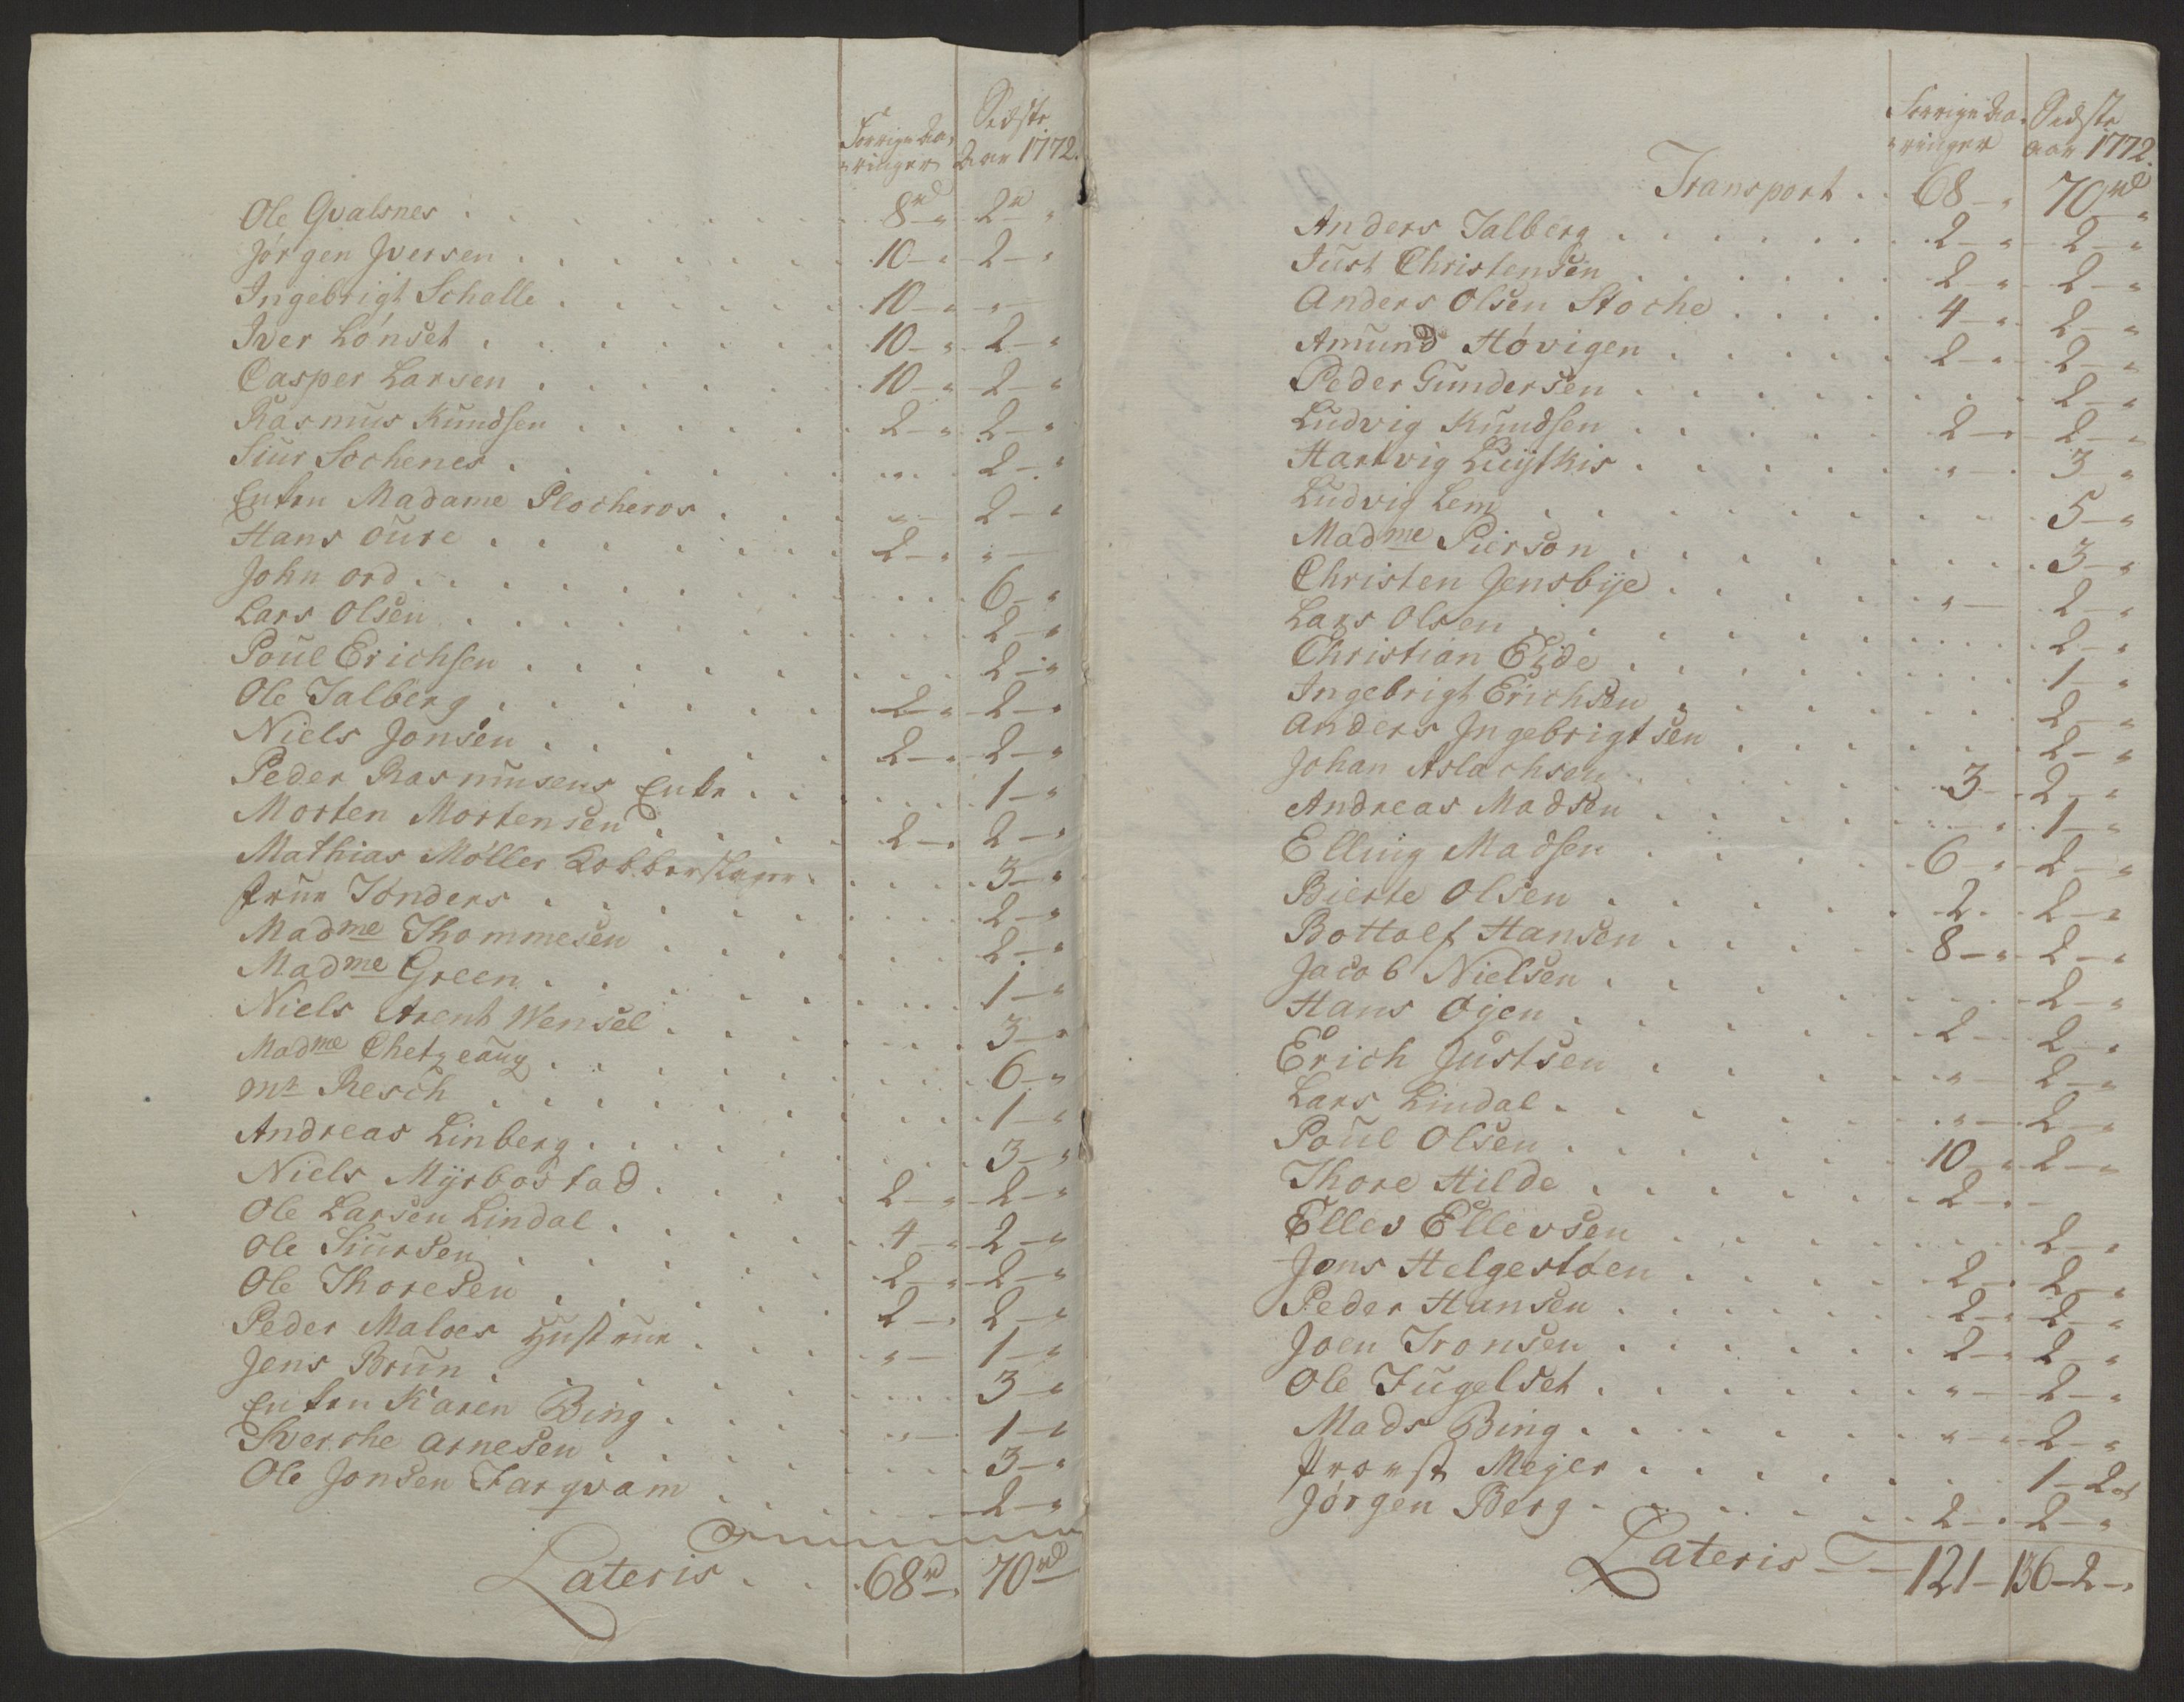 Forrige Aa- Sidste
ringer Aar 1772.
Ole Qvalsnes . . . . 8 rd - " 2 rd - "
Jørgen Iversen . . . . 10 - " 2 - "
Ingebrigt Schalle . . . . 10 - " " -
Iver Lønset . . . . 10 - " 2 - "
Casper Larsen . . . . 10 - " 2 - "
Rasmus Knudsen . . . . 2 - " 2 - "
Siur Sochenes . . . . " " 2 - "
Enken Madame Plocheros . . . . " - 2 - "
Hans Oure . . . . 2 - " " -
John Ord . . . . 6 - "
Lars Olsen . . . . 2 - "
Poul Erichsen . . . . 2 - "
Ole Talberg . . . . 2 - " 2 - "
Niels Jonsen . . . . 2 - " 2 - "
Peder Rasmusens Enke . . . . 1 - "
Morten Mortensen . . . . 2 - " 2 - "
Mathias Møller Kobberslager . . . . 3 - "
Frue Tønders . . . . 2 - "
Madme Thommesen . . . . 2 - "
Madme Green . . . . 1 - "
Niels Arent Wensel . . . . 3 - "
Madme . . . . 6 - "
Mr Resch . . . . 1 - "
Andreas Linberg . . . . 3 - "
Niels Myrbostad . . . . 2 - " 2 - "
Ole Larsen Lindal . . . . 4 - " 2 - "
Ole Siursen . . . . 2 - " 2 - "
Ole Thoresen . . . . 2 - " 2 - "
Peder Maloes Hustrue . . . . " - 1 - "
Jens Brun . . . . 3 - "
Enken Karen Bing . . . . " - 1 - "
Sverche Arnesen . . . . 3 - "
Ole Jonsen Farqvam . . . . 2 - "
Lateris . . . 68 rd - " 70 rd
Forrige Aa- Sidste
ringer Aar 1772.
Transport . . 68 - " 70 rd "
Anders Talberg . . . . 2 - " 2 - "
Just Christensen . . . . 2 - " 2 - "
Anders Olsen Stoche . . . . 4 - " 2 - "
Amund Høvigen . . . . 2 - " 2 - "
Peder Gundersen . . . . 2 - "
Ludvig Knudsen . . . . 2 - " 2 - "
Hartvig Luytkis . . . . " - 3 "
Ludvig Lem . . . . 5 - "
Madme Pierson . . . . 3 - "
Christen Jensbye . . . . " - 2 - "
Lars Olsen . . . . 2 - "
Christian Eide . . . . 1 - "
Ingebrigt Erichsen . . . . 2 - "
Anders Ingebrigtsen . . . . 2 - "
Johan Aslachsen . . . . 3 - 2 - "
Andreas Madsen . . . . 1 - "
Elling Madsen . . . . 6 - " 2 - "
Bierte Olsen . . . . 2 . 2 - "
Bottolf Hansen . . . . 8 - " 2 - "
Jacob Nielsen . . . . 2 - "
Hans Øyen . . . . 2 - 2 - "
Erich Justsen . . . . " - 2 - "
Lars Lindal . . . . " - 2 - "
Poul Olsen . . . . 10 - " 2 - "
Thore Hilde . . . . 2 - " -
Ellev Ellevsen . . . . 2 - "
Jens Helgestøen . . . . 2 - " 2 - "
Peder Hansen . . . . 2 - " 2 - "
Joen Tronsen . . . . 2 - " 2 - "
Ole Fugelset . . . . " - 2 - "
Mads Bing . . . . " - " 2 - "
Provst Meyer . . . . 1 - 2
Jørgen Berg . . . . 2 - " 2 - "
Lateris - 121 - 136 - 2 - "